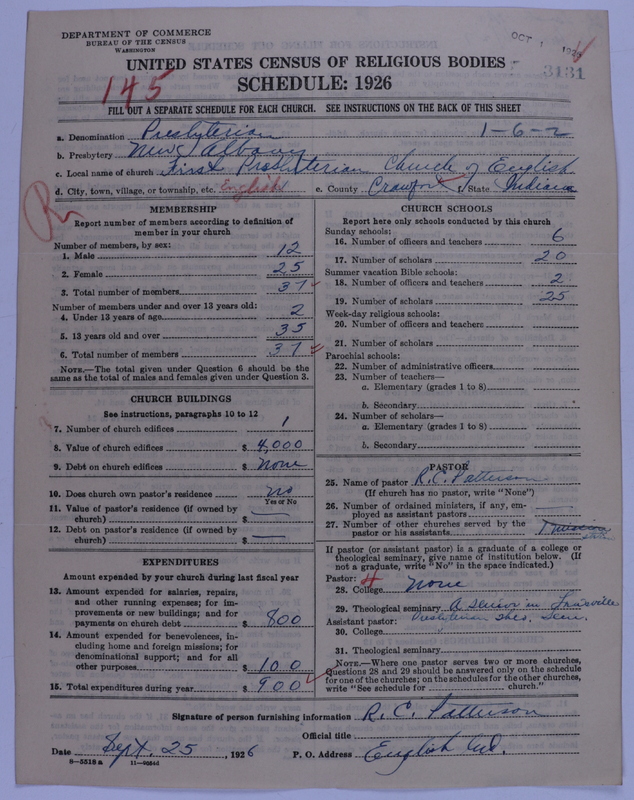 DEPARTMENT OF COMMERCE
BUREAU OF THE CENSUS
WASHINGTON
OCT 1
3131
UNITED STATES CENSUS OF RELIGIOUS BODIES
SCHEDULE: 1926
145
FILL OUT A SEPARATE SCHEDULE FOR EACH CHURCH. SEE INSTRUCTIONS ON THE BACK OF THIS SHEET
a. Denomination Presbyterian 1-6-2
b. Presbytery New Albany
c. Local name of church First Presbyterian Church of English
d. City, town, village, or township, etc. English e. County Crawford f. State Indiana
MEMBERSHIP
Report number of members according to definition of
member in your church
Number of members, by sex:
1. Male 12
2. Female 25
3. Total number of members 37
Number of members under and over 13 years old:
4. Under 13 years of age 2
5. 13 years old and over 35
6. Total number of members 37
NOTE.—The total given under Question 6 should be
same as the total of males and females given under Question 3.
CHURCH BUILDINGS
See instructions, paragraphs 10 to 12
7. Number of church edifices 1
8. Value of church edifices $ 4,000
9. Debt on church edifices $ None
10. Does church own pastor's residence No
Yes or No
11. Value of pastor's residence (if owned by
church) $ —
12. Debt on pastor's residence (if owned by
church) $ —
EXPENDITURES
Amount expended by your church during last fiscal year
13. Amount expended for salaries, repairs,
and other running expenses; for im-
provements or new buildings; and for
payments on church debt $ 800
14. Amount expended for benevolences, in-
cluding home and foreign missions; for
denominational support; and for all
other purposes $ 100
15. Total expenditures during year $ 900
CHURCH SCHOOLS
Report here only schools conducted by this church
Sunday schools:
16. Number of officers and teachers 6
17. Number of scholars 20
Summer vacation Bible schools:
18. Number of officers and teachers 2
19. Number of scholars 25
Week-day religious schools:
20. Number of officers and teachers
21. Number of scholars
Parochial schools:
22. Number of administrative officers
23. Number of teachers—
a. Elementary (grades 1 to 8)
b. Secondary
24. Number of scholars—
a. Elementary (grades 1 to 8)
b. Secondary
PASTOR
25. Name of pastor R. C. Patterson
(If church has no pastor, write "None")
26. Number of ordained ministers, if any, em-
ployed as assistant pastors
27. Number of other churches served by the
pastor or his assistants
If pastor (or assistant pastor) is a graduate of a college or
theological seminary, give name of institution below. (If
not a graduate, write "No" in the space indicated.)
Pastor:
28. College None
29. Theological seminary A senior in Louisville
Assistant pastor: Presbyterian Theo. Sem.
30. College
31. Theological seminary
NOTE.—Where one pastor serves two or more churches,
Questions 28 and 29 should be answered only on the schedule
for one of the churches; on the schedules for the other churches,
write "See schedule for church."
Signature of person furnishing information R. C. Patterson
Official title
Date Sept. 25, 1926 P. O. Address English Ind.
8-5518 a